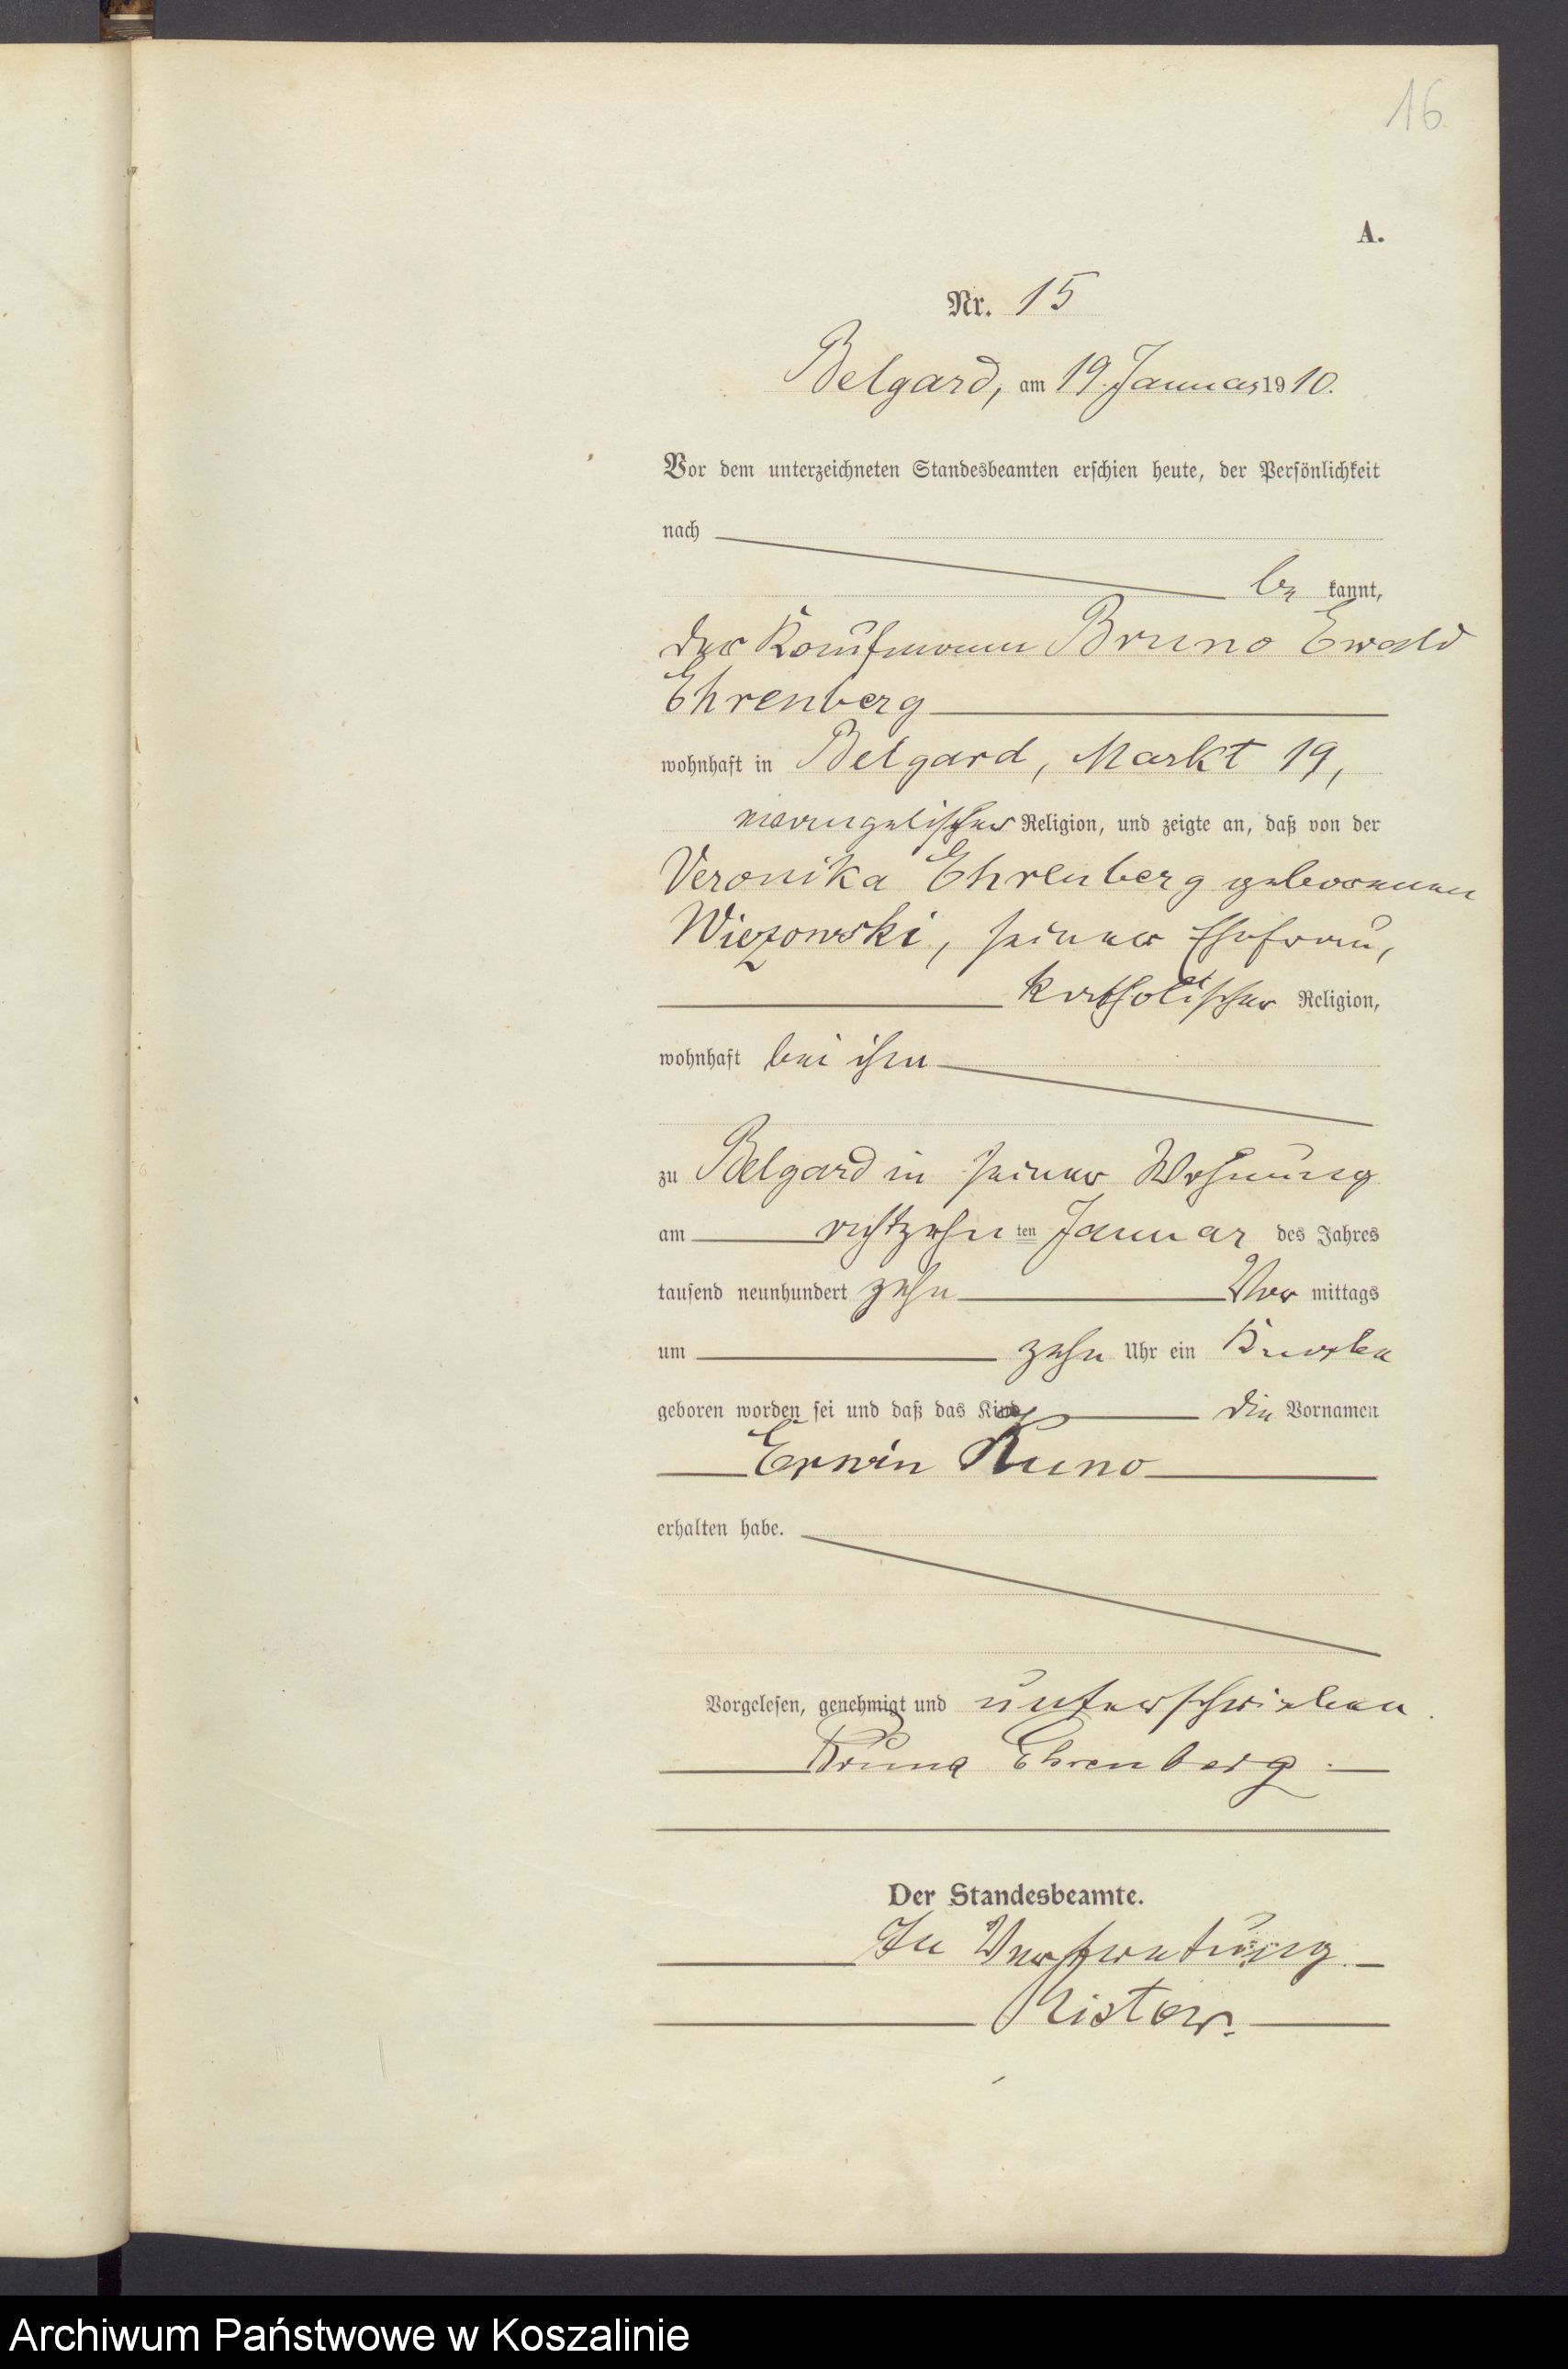 16.
A.
Nr. 15
Belgard, am 19. Januar 1910.
Vor dem unterzeichneten Standesbeamten erschien heute, der Persönlichkeit
nach
be kannt,
der Kaufmann Bruno Ewald
Ehrenberg
wohnhaft in Belgard, Markt 19,
evangelischer Religion, und zeigte an, daß von der
Veronika Ehrenberg geborenen
Wiezowski, seiner Ehefrau,
katholischer Religion,
wohnhaft bei ihm
zu Belgard in seiner Wohnung
am achtzehn ten Januar des Jahres
tausend neunhundert zehn Vor mittags
um zehn Uhr ein Knabe
geboren worden sei und daß das Kind die Vornamen
Erwin Kuno
erhalten habe.
Vorgelesen, genehmigt und unterschrieben.
Bruno Ehrenberg.
Der Standesbeamte.
In Vertretung.
Ristow.
Archiwum Państwowe w Koszalinie